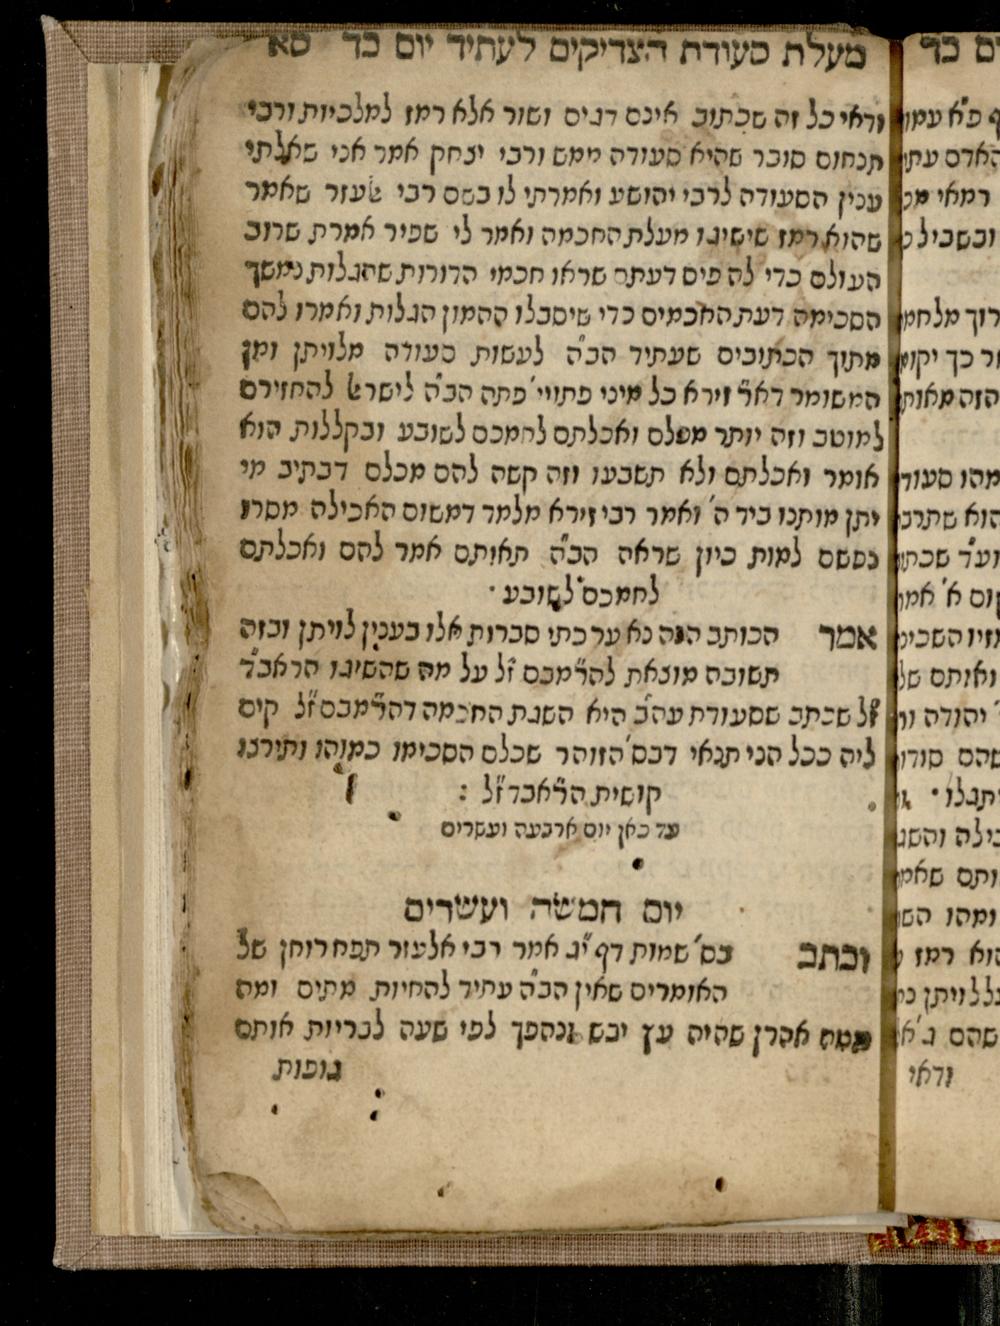 מעלת סעודת הצדיקים לעתיד יום כד סא
ודאי כל זה שכתוב אינם דגים ושור אלא רמז למלכיות ורבי
תנחום סובר שהיא סעודה ממש ורבי יצחק אמר אני שאלתי
ענין הסעודה לרבי יהושע ואמרתי לו בשם רבי אלעזר שאמר
שהוא רמז שישיגו מעלת החכמה ואמר לי שפיר אמרת שרוב
העולם כדי להפיס דעתם שראו חכמי הדורות שהגלות נמשך
הסכימה דעת החכמים כדי שיסבלו ההמון הגלות ואמרו להם
מתוך הכתובים שעתיד הב״ה לעשות סעודה מלויתן ומן
המשומר דא״ר זירא כל מיני פתויי׳ פתה הב״ה לישראל להחזירם
למוטב וזה יותר מכלם ואכלתם לחמכם לשובע ובקללות הוא
אומר ואכלתם ולא תשבעו וזה קשה להם מכלם דכתיב מי
יתן מותנו ביד ה׳ ואמר רבי זירא מלמד דמשום האכילה מסרו
נפשם למות כיון שראה הב״ה תאותם אמר להם ואכלתם
לחמכם לשובע ·
אמר הכותב הנה נא ערכתי סברות אלו בענין לויתן ובזה
תשובה מוצאת להר״מבם ז״ל על מה שהשיגו הראב״ד
ז״ל שכתב שסעודת עה״ב היא השגת החכמה דהר״מבם ז״ל קים
ליה ככל הני תנאי דבס׳ הזוהר שכלם הסכימו כמוהו ותירצו
קושית הר״אבד ז״ל :
עד כאן יום ארבעה ועשרים
יום חמשה ועשרים
וכתב בס׳ שמות דף י״ג אמר רבי אלעזר תפח רוחן של
האומרים שאין הב״ה עתיד להחיות מתים ומה
מטה אהרן שהיה עץ יבש ונהפך לפי שעה לבריות אותם
גופות